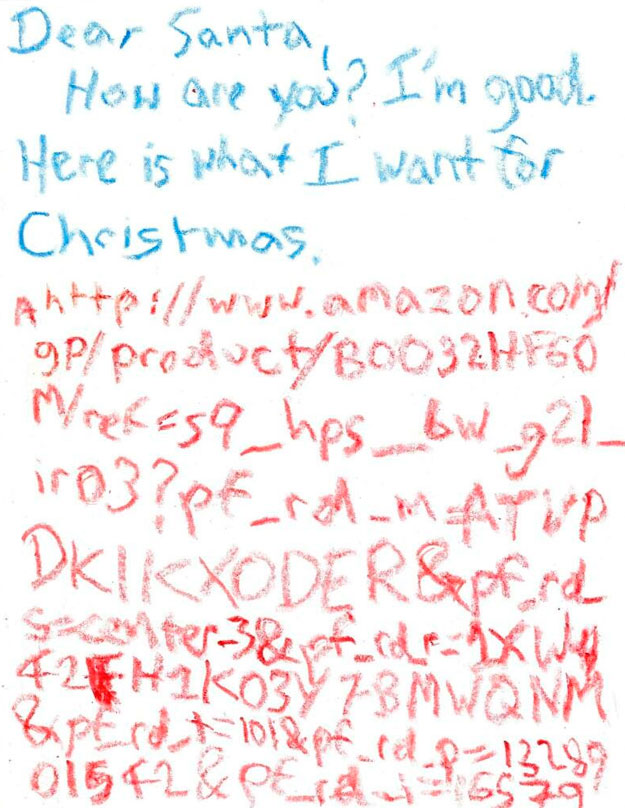 Dear Santa,
How are you? I'm good.
Here is what I want for
Christmas.
Ahttp://www.amazon.com/
gp/product/B0032HF60
M/ref=s9_hps_bw_g21_
ir03?pf_rd_m=ATVP
DKIKX0DER&pf_rd_
s=center-3&pf_rd_r=1XWY
42FH1K03Y7BMWQNM
&pf_rd_t=101&pf_rd_p=13289
01542&pf_rd_i=166579